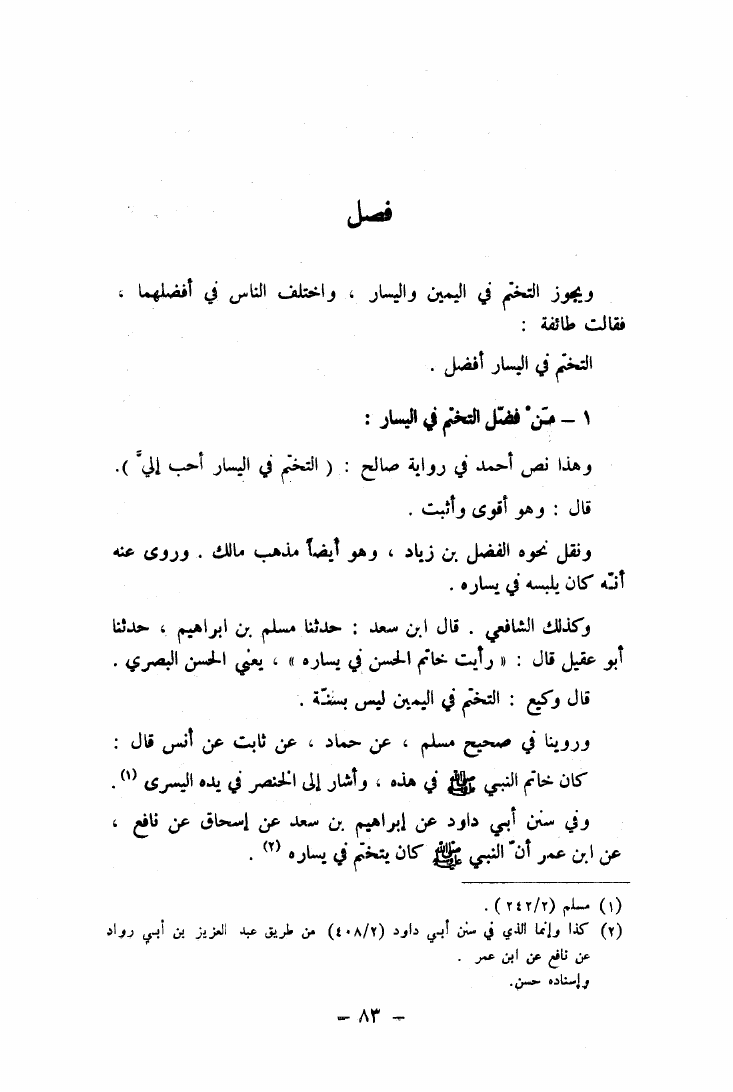 فصل
ويجوز التختّم في اليمين واليسار ، واختلف الناس في أفضلهما ،
فقالت طائفة :
التختّم في اليسار أفضل .
١ – مَنْ فضّل التختّم في اليسار :
وهذا نص أحمد في رواية صالح : ( التختّم في اليسار أحب إليَّ ).
قال : وهو أقوى وأثبت .
ونقل نحوه الفضل بن زياد ، وهو أيضاً مذهب مالك . وروى عنه
أنّه كان يلبسه في يساره .
وكذلك الشافعي . قال ابن سعد : حدثنا مسلم بن ابراهيم ، حدثنا
أبو عقيل قال : « رأيت خاتم الحسن في يساره » ، يعني الحسن البصري .
قال وكيع : التختّم في اليمين ليس بسنّة .
وروينا في صحيح مسلم ، عن حماد ، عن ثابت عن أنس قال :
كان خاتم النبي ﷺ في هذه ، وأشار إلى الخنصر في يده اليسرى (١) .
وفي سنن أبي داود عن إبراهيم بن سعد عن إسحاق عن نافع ،
عن ابن عمر أنّ النبي ﷺ كان يتختّم في يساره (٢) .
(١) مسلم (٢٤٢/٢) .
(٢) كذا وإنما الذي في سنن أبي داود (٤٠٨/٢) من طريق عبد العزيز بن أبي رواد
عن نافع عن ابن عمر .
وإسناده حسن.
– ٨٣ –